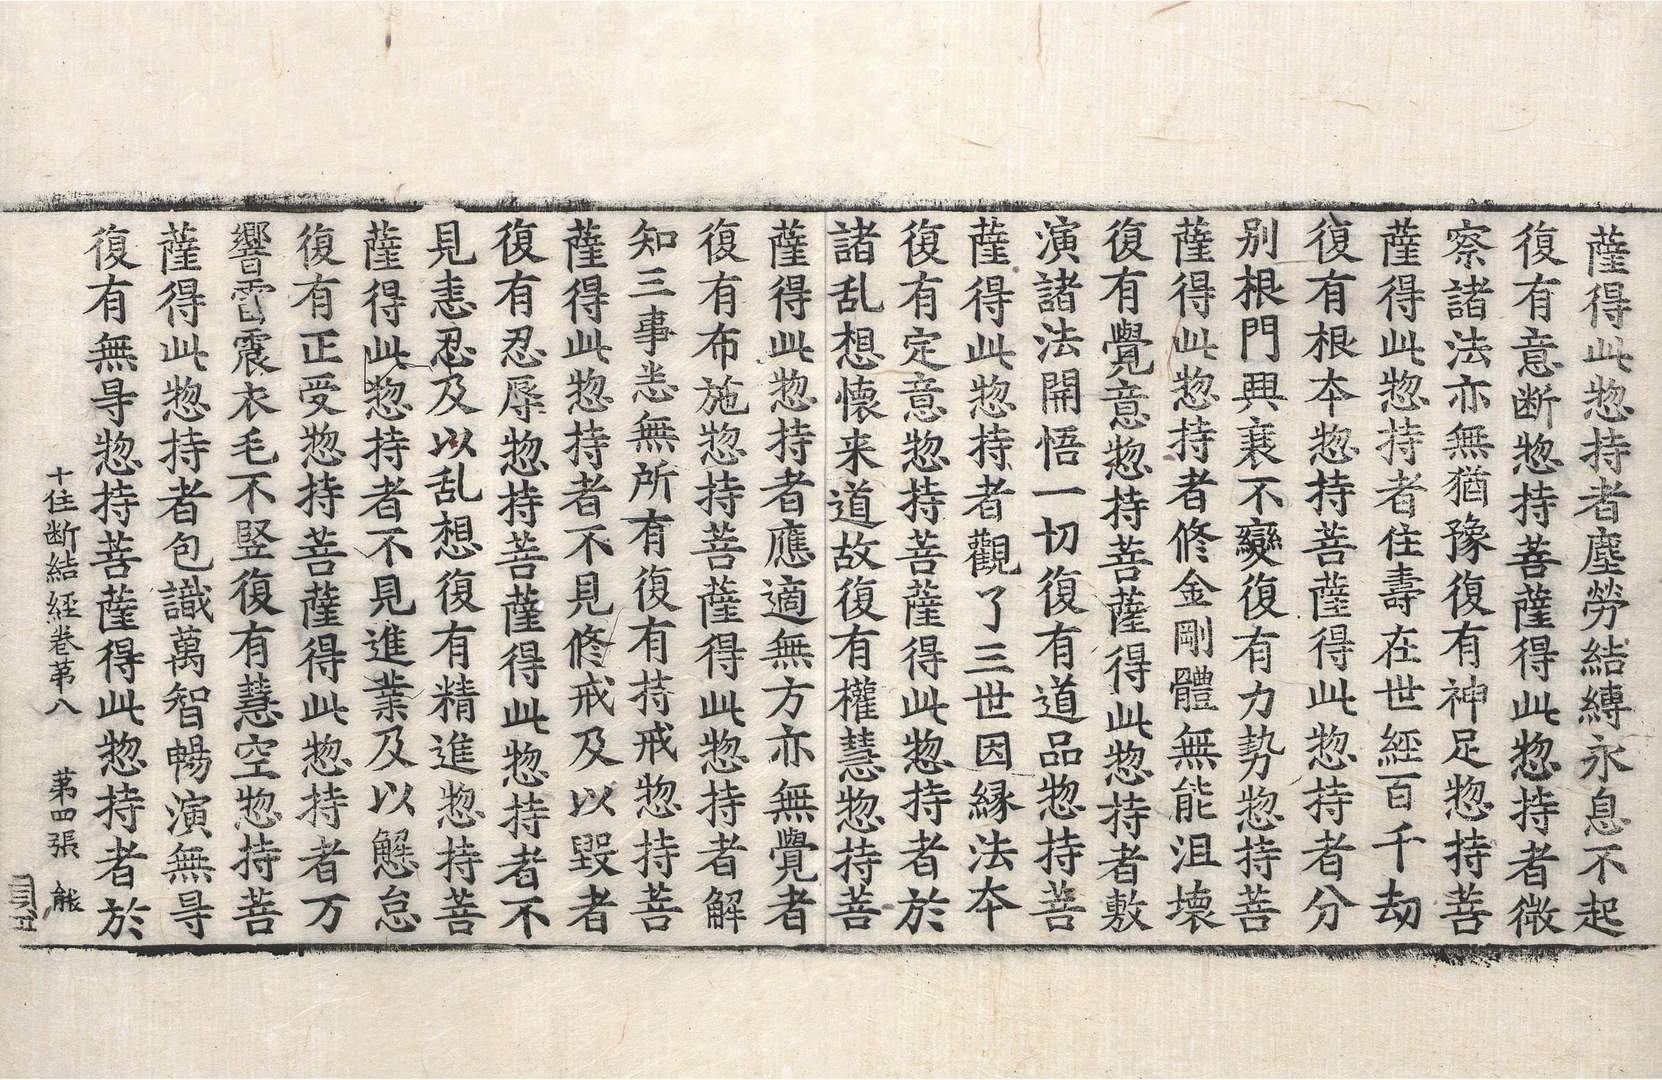 薩得此惣持者塵勞結縛永息不起
復有意断惣持菩薩得此惣持者微
察諸法亦無猶豫復有神足惣持菩
薩得此惣持者住壽在世經百千劫
復有根本惣持菩薩得此惣持者分
別根門興衰不變復有力勢惣持菩
薩得此惣持者修金剛體無能沮壞
復有覺意惣持菩薩得此惣持者敷
演諸法開悟一切復有道品惣持菩
薩得此惣持者觀了三世因縁法本
復有定意惣持菩薩得此惣持者於
諸乱想懷来道故復有權慧惣持菩
薩得此惣持者應適無方亦無覺者
復有布施惣持菩薩得此惣持者解
知三事悉無所有復有持戒惣持菩
薩得此惣持者不見修戒及以毀者
復有忍辱惣持菩薩得此惣持者不
見恚忍及以乱想復有精進惣持菩
薩得此惣持者不見進業及以懈怠
復有正受惣持菩薩得此惣持者万
響雷震衣毛不竪復有慧空惣持菩
薩得此惣持者包識萬智暢演無㝵
復有無㝵惣持菩薩得此惣持者於
十住断結経巻苐八 苐四張